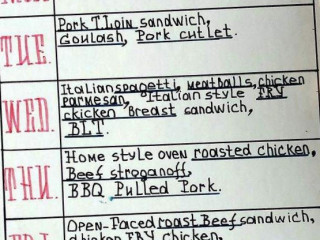 TUE.
Pork T Loin sandwich,
Goulash, Pork cutlet.
WED.
Italian spagetti, meatballs, chicken
parmesan, "Italian style FRY
ckicken Breast sandwich,
BLT.
THU.
Home style oven roasted chicken,
Beef stroganoff,
BBQ Pulled Pork.
Open-Faced roast Beef sandwich,
chicken FRY chicken,